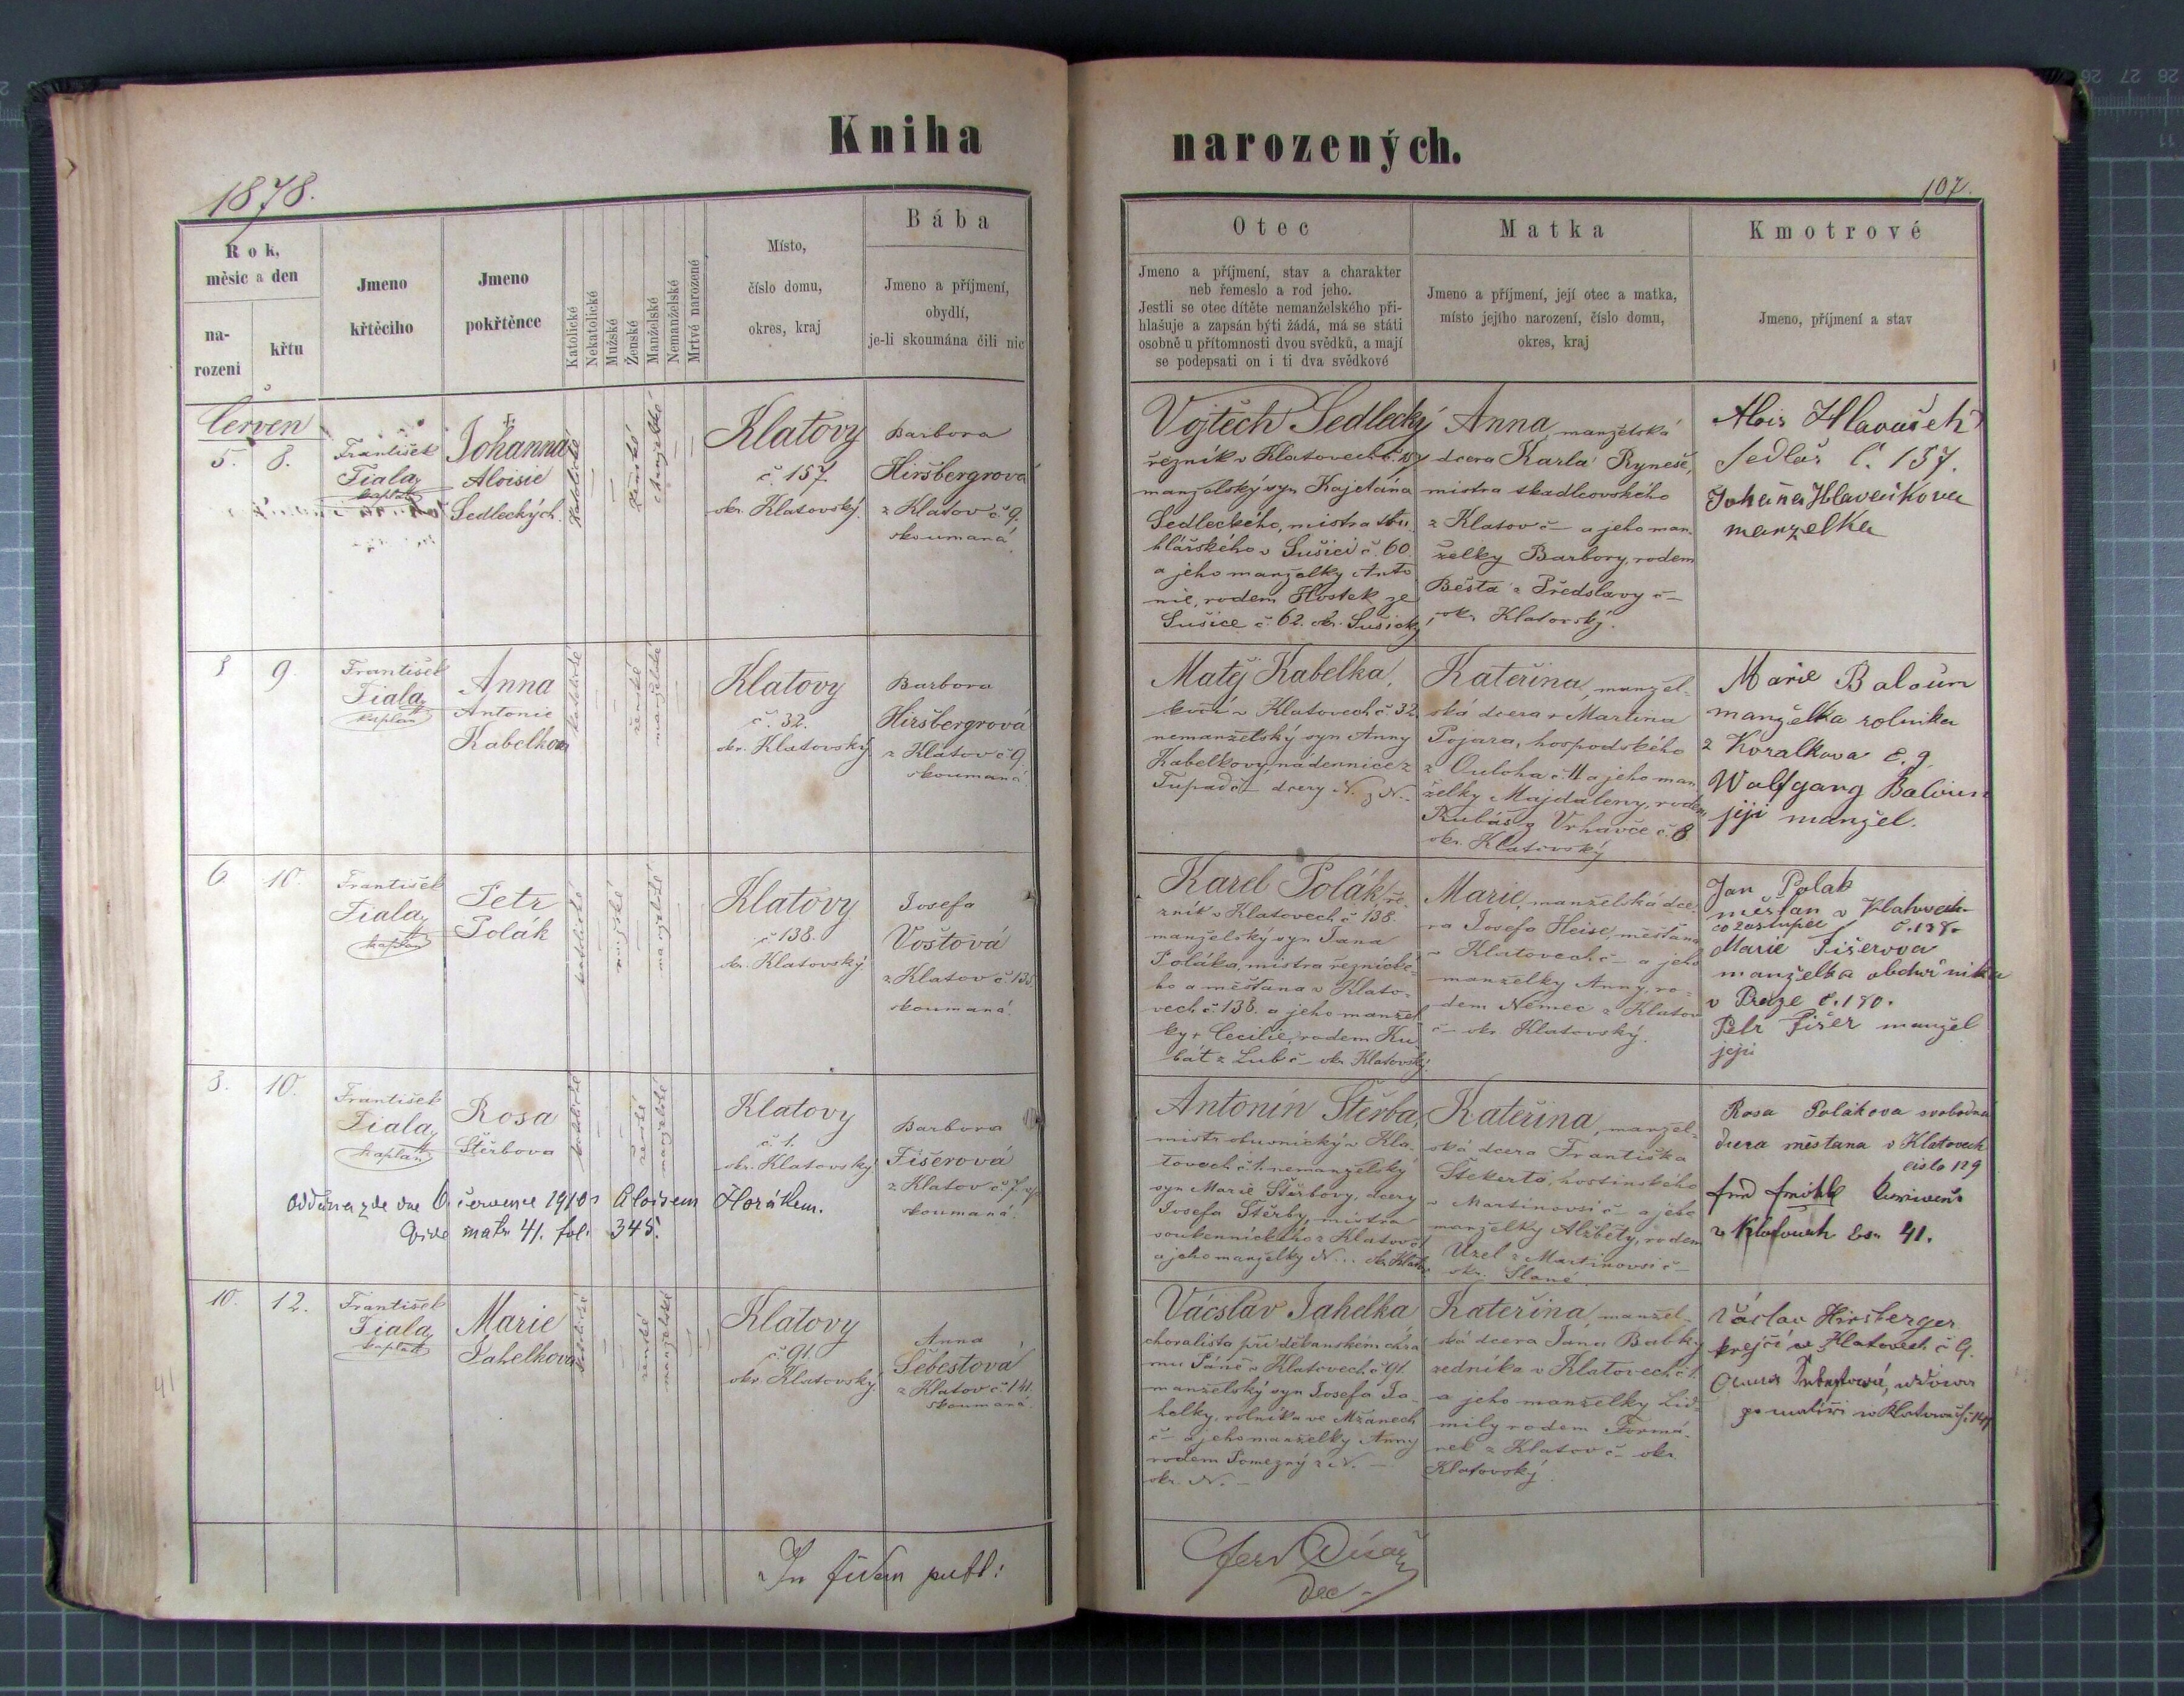 Kniha
narozených.
1878.
107.
Rok,
měsíc a den
na-
rozeni
křtu
Jmeno
křtěciho
Jmeno
pokřtěnce
Katolické
Nekatolické
Mužské
Ženské
Manželské
Nemanželské
Mrtvé narozené
Místo,
číslo domu,
okres, kraj
Bába
Jmeno a příjmení,
obydlí,
je-li skoumána čili nic
Otec
Jmeno a příjmení, stav a charakter
neb řemeslo a rod jeho.
Jestli se otec dítěte nemanželského při-
hlašuje a zapsán býti žádá, má se státi
osobně u přítomnosti dvou svědků, a mají
se podepsati on i ti dva svědkové
Matka
Jmeno a příjmení, její otec a matka,
místo jejího narození, číslo domu,
okres, kraj
Kmotrové
Jmeno, příjmení a stav
Červen
5. 8.
František
Fiala
kaplan
Johanna
Aloisie
Sedleckých
katolické
ženské
manželské
Klatovy
č. 157.
okr. Klatovský.
Barbora
Hiršbergrová
z Klatov č 9.
skoumaná
Vojtěch Sedlecký
řezník v Klatovech č. 157
manželský syn Kajetána
Sedleckého, mistra tru-
hlářského v Sušici č. 60.
a jeho manželky Anto
nie, rodem Hostek ze
Sušice č. 62. okr. Sušický
Anna, manželská
dcera Karla Ryneše,
mistra tkadlcovského
z Klatov č – a jeho man-
želky Barbory, rodem
Bešta z Předslavy č –
okr. Klatovský.
Alois Hlavaček
sedlář č. 157.
Johana Hlavačkova
manzelka
8 9.
František
Fiala
kaplan
Anna
Antonie
Kabelkova
katolické
ženské
manželské
Klatovy
č. 32.
okr. Klatovský
Barbora
Hiršbergrová
z Klatov č 9.
skoumaná
Matěj Kabelka,
v Klatovech č 32
nemanželský syn Anny
Kabelkovy, nádennice z
Tupadč – dcery N. z N. –
Kateřina, manžel-
ská dcera Martina
Pojara, hospodského
z Ouloha č 11 a jeho man
želky Majdaleny, rodem
Rubáš z Vrhavče č. 8
okr. Klatovský
Marie Baloun
manželka rolníka
z Koralkova č. 9.
Wolfgang Baloun
jeji manžel.
6. 10.
František
Fiala
kaplan
Petr
Polák
katolické
mužské
manželské
Klatovy
č 138.
okr. Klatovský
Josefa
Voštová
z Klatov č. 135
skoumaná.
Karel Polák, ře-
zník v Klatovech č 138.
manželský syn Jana
Poláka, mistra řeznické-
ho a měšťana v Klato-
vech č 138. a jeho manžel
ky Cecilie, rodem Ku
bát z Lub č – okr. Klatovský.
Marie, manželská dce-
ra Josefa Heise, měšťana
v Klatovech č – a jeho
manželky Anny, ro-
dem Němec z Klatov
č – okr. Klatovský.
Jan Polak
měšťan v Klatovech
co zastupce č. 138.
Marie Fišerova
manželka obchodnika
v Praze č. 180.
Petr Fišer manžel
její
8. 10.
František
Fiala
kaplan
Rosa
Štěrbova
katolické
ženské
manželské
Klatovy
č 1.
okr. Klatovský
Barbora
Fišerová
z Klatov č. 7.
skoumaná.
Oddána zde dne 6. července 1910 s Aloisem Horákem.
Vide matr 41. fol. 345.
Antonín Štěrba,
mistr obuvnický v Kla-
tovech č 1. nemanželský
syn Marie Štěrbovy, dcery
Josefa Štěrby, mistra
soukennického z Klatov č
a jeho manželky N...
Kateřina, manžel-
ská dcera Františka
Štekerta, hostinského
v Martinovsi č – a jeho
manželky Alžběty, rodem
Uzel z Martinovsi č –
okr. Slané.
Rosa Polákova svobodná
dcera městana v Klatovech
cislo 129
v Klatovech čs. 41.
10. 12.
František
Fiala
kaplan
Marie
Jahelkova
katolické
ženské
manželské
Klatovy
č. 91.
okr. Klatovský.
Anna
Šebestová
z Klatov č. 141.
skoumaná
Vácslav Jahelka
choralista při děkanském chrá
mu Páně v Klatovech č 91
manželský syn Josefa Ja-
helky, rolníka ve Mžanech
č – a jeho manželky Anny
rodem Pomezný z N. –
okr. N. –
Kateřina, manžel-
ská dcera Jana Babky
zedníka v Klatovech č 1.
a jeho manželky Lid-
mily rodem Formá-
nek z Klatov č – okr.
Klatovský.
Václav Hirsberger
krejčí v Klatovech č 9.
Anna Šebestová, vdova
po malíři v Klatovech č 141
In fidem publ: